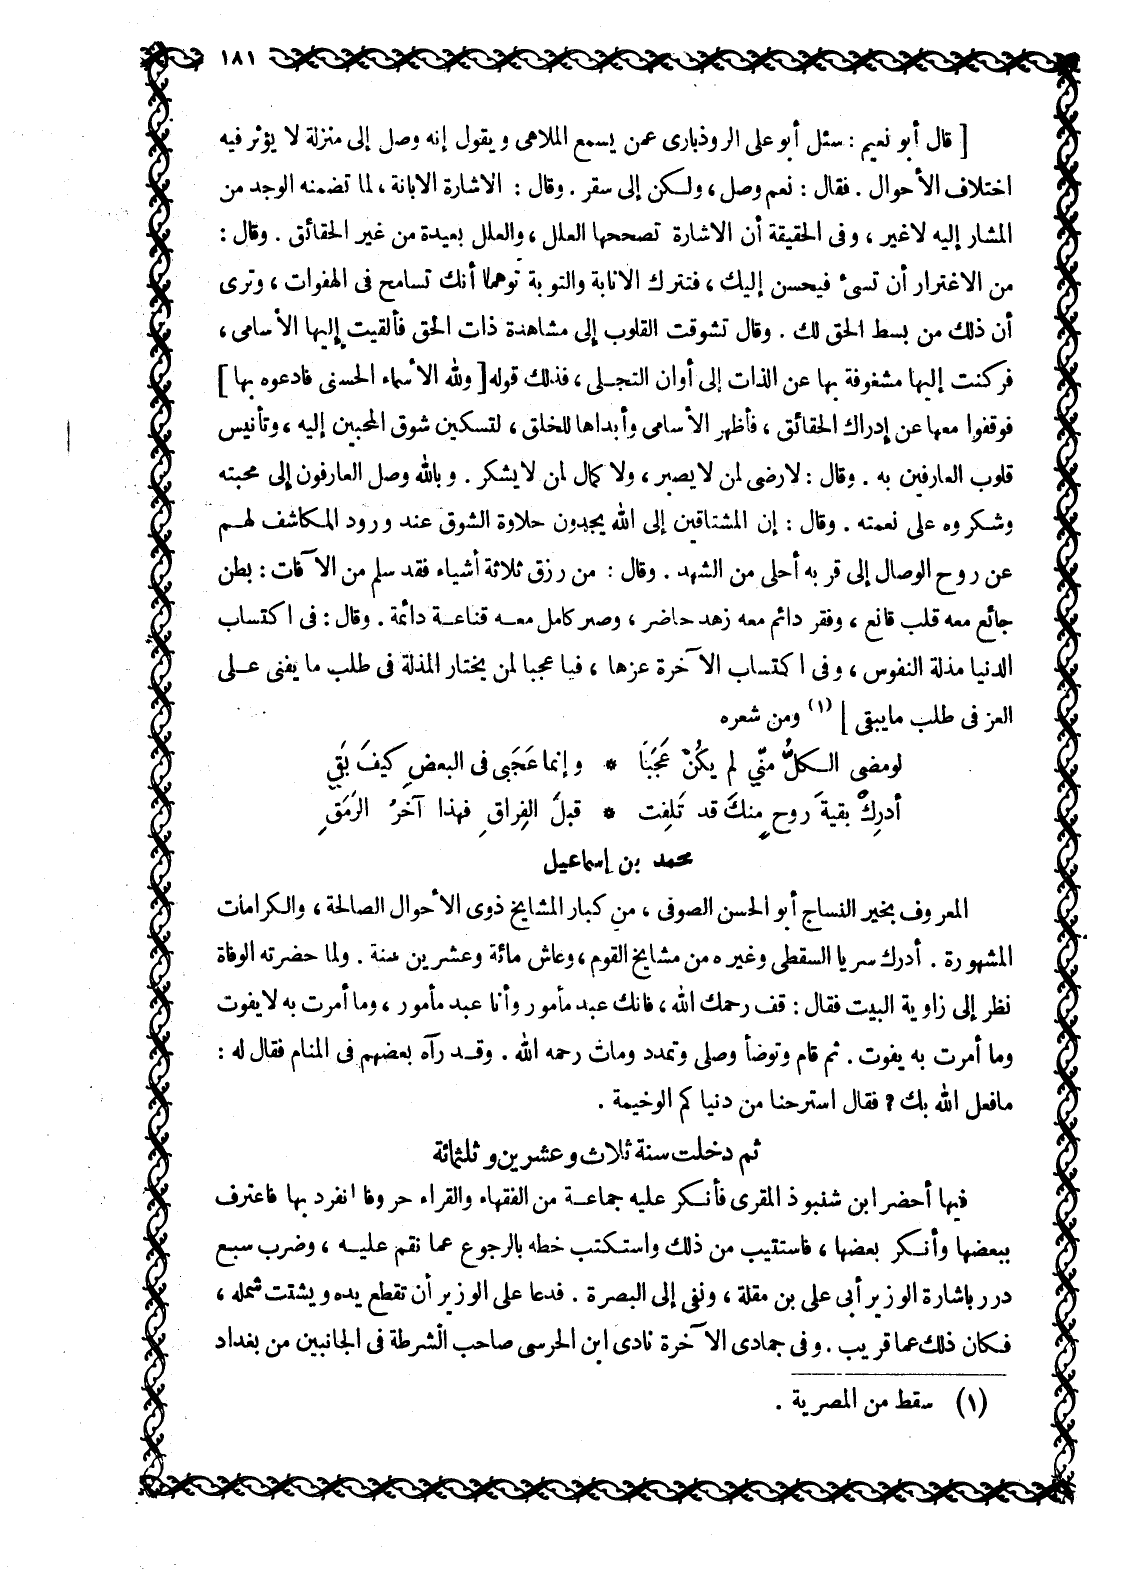 ١٨١
[ قال أبو نعيم : سئل أبو على الروذبارى عمن يسمع الملاهى ويقول إنه وصل إلى منزلة لا يؤثر فيه
اختلاف الأحوال . فقال : نعم وصل ، ولكن إلى سقر . وقال : الاشارة الابانة ، لما تضمنه الوجد من
المشار إليه لاغير ، وفى الحقيقة أن الاشارة تصححها العلل ، والعلل بعيدة من غير الحقائق . وقال :
من الاغترار أن تسىء فيحسن إليك ، فتترك الانابة والتوبة توهماً أنك تسامح فى الهفوات ، وترى
أن ذلك من بسط الحق لك . وقال تشوقت القلوب إلى مشاهدة ذات الحق فألقيت إليها الأسامى ،
فركنت إليها مشغوفة بها عن الذات إلى أوان التجلى ، فذلك قوله [ ولله الأسماء الحسنى فادعوه بها ]
فوقفوا معها عن إدراك الحقائق ، فأظهر الأسامى وأبداها للخلق ، لتسكين شوق المحبين إليه ، وتأنيس
قلوب العارفين به . وقال : لا رضى لمن لا يصبر ، ولا كمال لمن لا يشكر . وبالله وصل العارفون إلى محبته
وشكروه على نعمته . وقال : إن المشتاقين إلى الله يجدون حلاوة الشوق عند ورود المكاشف لهم
عن روح الوصال إلى قربه أحلى من الشهد . وقال : من رزق ثلاثة أشياء فقد سلم من الآفات : بطن
جائع معه قلب قانع ، وفقر دائم معه زهد حاضر ، وصبر كامل معه قناعة دائمة . وقال : فى اكتساب
الدنيا مذلة النفوس ، وفى اكتساب الآخرة عزها ، فيا عجبا لمن يختار المذلة فى طلب ما يفنى على
العز فى طلب مايبقى ] (١) ومن شعره
لو مضى الكلُّ منّي لم يكُنْ عَجَبَاً * وإنما عَجَبى فى البعضِ كيفَ بَقَي
أدرِكْ بقيةَ روحٍ منكَ قد تَلِفت * قبلَ الفِراقِ فهذا آخرُ الرَمَقِ
محمد بن إسماعيل
المعروف بخير النساج أبو الحسن الصوفى ، من كبار المشايخ ذوى الأحوال الصالحة ، والكرامات
المشهورة . أدرك سريا السقطى وغيره من مشايخ القوم ، وعاش مائة وعشرين سنة . ولما حضرته الوفاة
نظر إلى زاوية البيت فقال : قف رحمك الله ، فانك عبد مأمور وأنا عبد مأمور ، وما أمرت به لا يفوت
وما أمرت به يفوت . ثم قام وتوضأ وصلى وتمدد ومات رحمه الله . وقد رآه بعضهم فى المنام فقال له :
مافعل الله بك ؟ فقال استرحنا من دنياكم الوخيمة .
ثم دخلت سنة ثلاث وعشرين وثلثمائة
فيها أحضر ابن شنبوذ المقرى فأنكر عليه جماعة من الفقهاء والقراء حروفا انفرد بها فاعترف
ببعضها وأنكر بعضها ، فاستتيب من ذلك واستكتب خطه بالرجوع عما نقم عليه ، وضرب سبع
درر باشارة الوزير أبى على بن مقلة ، ونفى إلى البصرة . فدعا على الوزير أن تقطع يده ويشتت شمله ،
فكان ذلك عما قريب . وفى جمادى الآخرة نادى ابن الحرسى صاحب الشرطة فى الجانبين من بغداد
(١) سقط من المصرية .